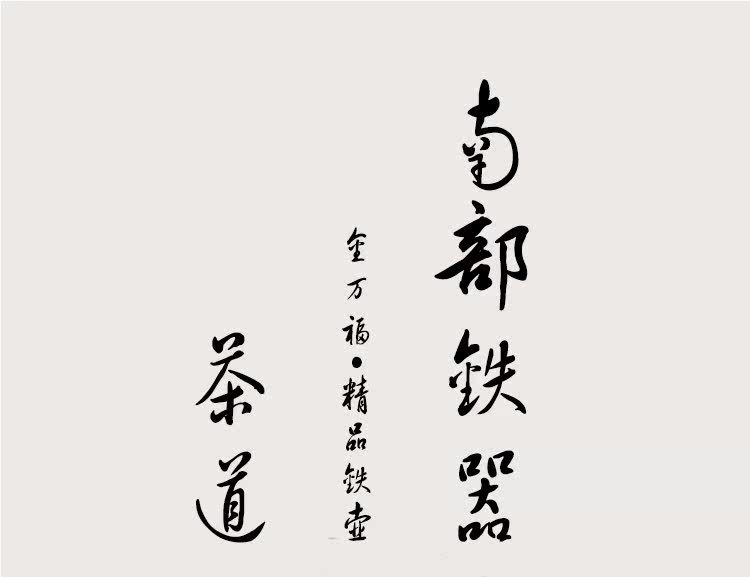 南部鉄器
金万福•精品鉄壶
茶道